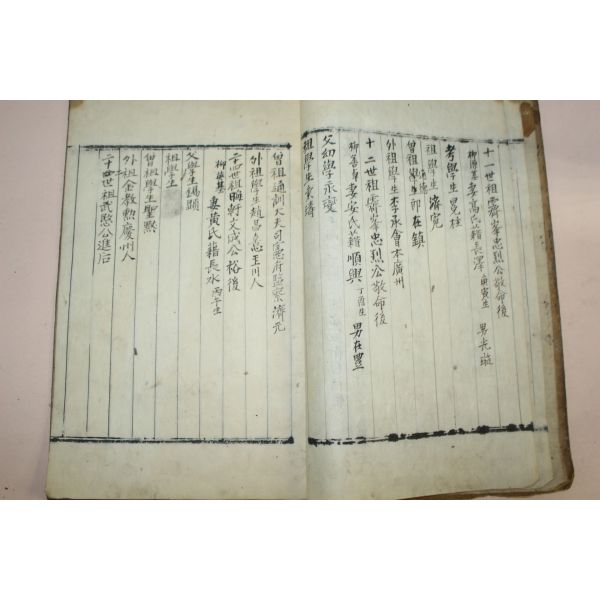 十一世祖霽峯忠烈公敬命後
妻高氏籍長澤 庚寅生 男光璇
考學生冕柱
祖學生濟寬
曾祖學生 在鎮
外祖學生李承會本廣州
十二世祖霽峯忠烈公敬命後
柳善 妻安氏籍順興 丁酉生 男在豊
父幼學永燮
祖學生
曾祖通訓大夫司憲府監察濟元
外祖學生趙昌 玉川人
二十四世祖晦軒文成公裕後
柳 基 妻黃氏籍長水 丙午生
父學生錫顯
祖學生
曾祖學生聖默
外祖金教勲慶州人
二十四世祖武愍公進后